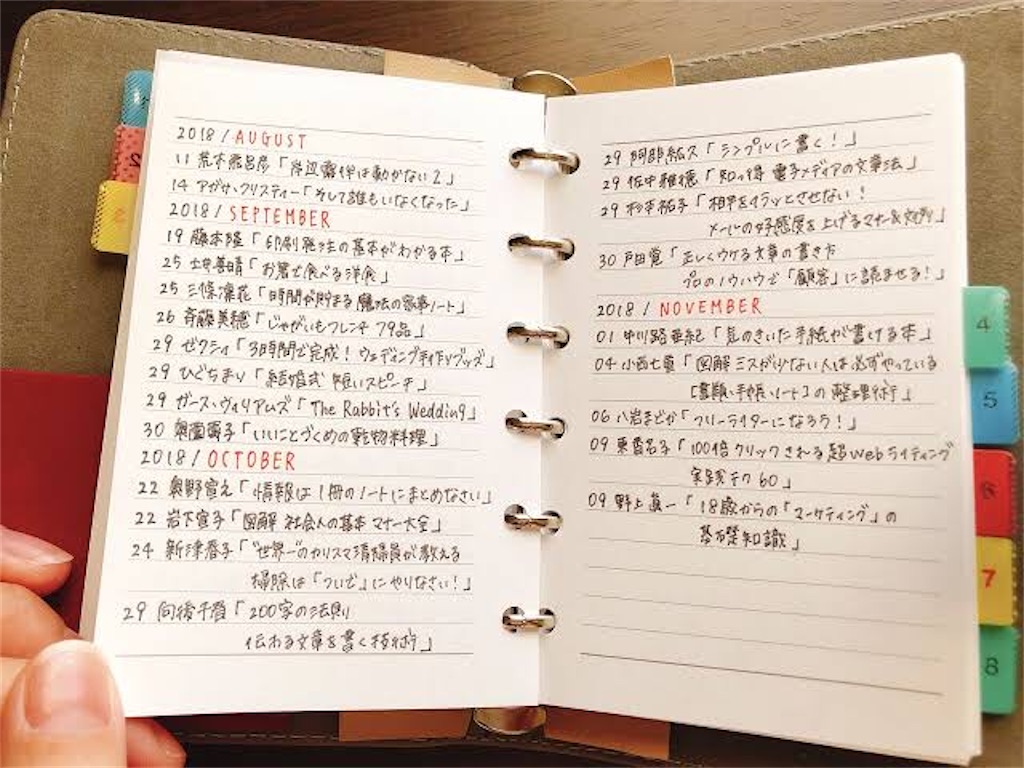 2018 / AUGUST
11 荒木飛呂彦「岸辺露伴は動かない 2」
14 アガサ・クリスティー「そして誰もいなくなった」
2018 / SEPTEMBER
19 藤本隆「印刷発注の基本がわかる本」
25 土井善晴「お箸で食べる洋食」
25 三條凛花「時間が貯まる 魔法の家事ノート」
26 斉藤美穂「じゃがいもフレンチ 79品」
29 ゼクシィ「3時間で完成! ウェディング手作りグッズ」
29 ひぐちまり「結婚式 短いスピーチ」
29 ガース・ウィリアムズ「The Rabbit's Wedding」
30 奥薗壽子「いいことづくめの乾物料理」
2018 / OCTOBER
22 奥野宣之「情報は1冊のノートにまとめなさい」
22 岩下宣子「図解 社会人の基本 マナー大全」
24 新津春子「"世界一"のカリスマ清掃員が教える
掃除は「ついで」にやりなさい!」
29 向後千春「200字の法則
伝わる文章を書く技術」
29 阿部紘久「シンプルに書く!」
29 佐中雅穂「知っ得 電子メディアの文章法」
29 杉本祐子「相手をイラッとさせない!
メールの好感度を上げるマナー&文例」
30 戸田覚「正しくウケる文章の書き方
プロのノウハウで「顧客」に読ませる!」
2018 / NOVEMBER
01 中川路亜紀「気のきいた手紙が書ける本」
04 小西七重「図解 ミスが少ない人は必ずやっている
[書類・手帳・ノート]の整理術」
06 八岩まどか「フリーライターになろう!」
09 東香名子「100倍クリックされる超Webライティング
実践テク60」
09 野上眞一「18歳からの「マーケティング」の
基礎知識」
2
4
5
6
7
8